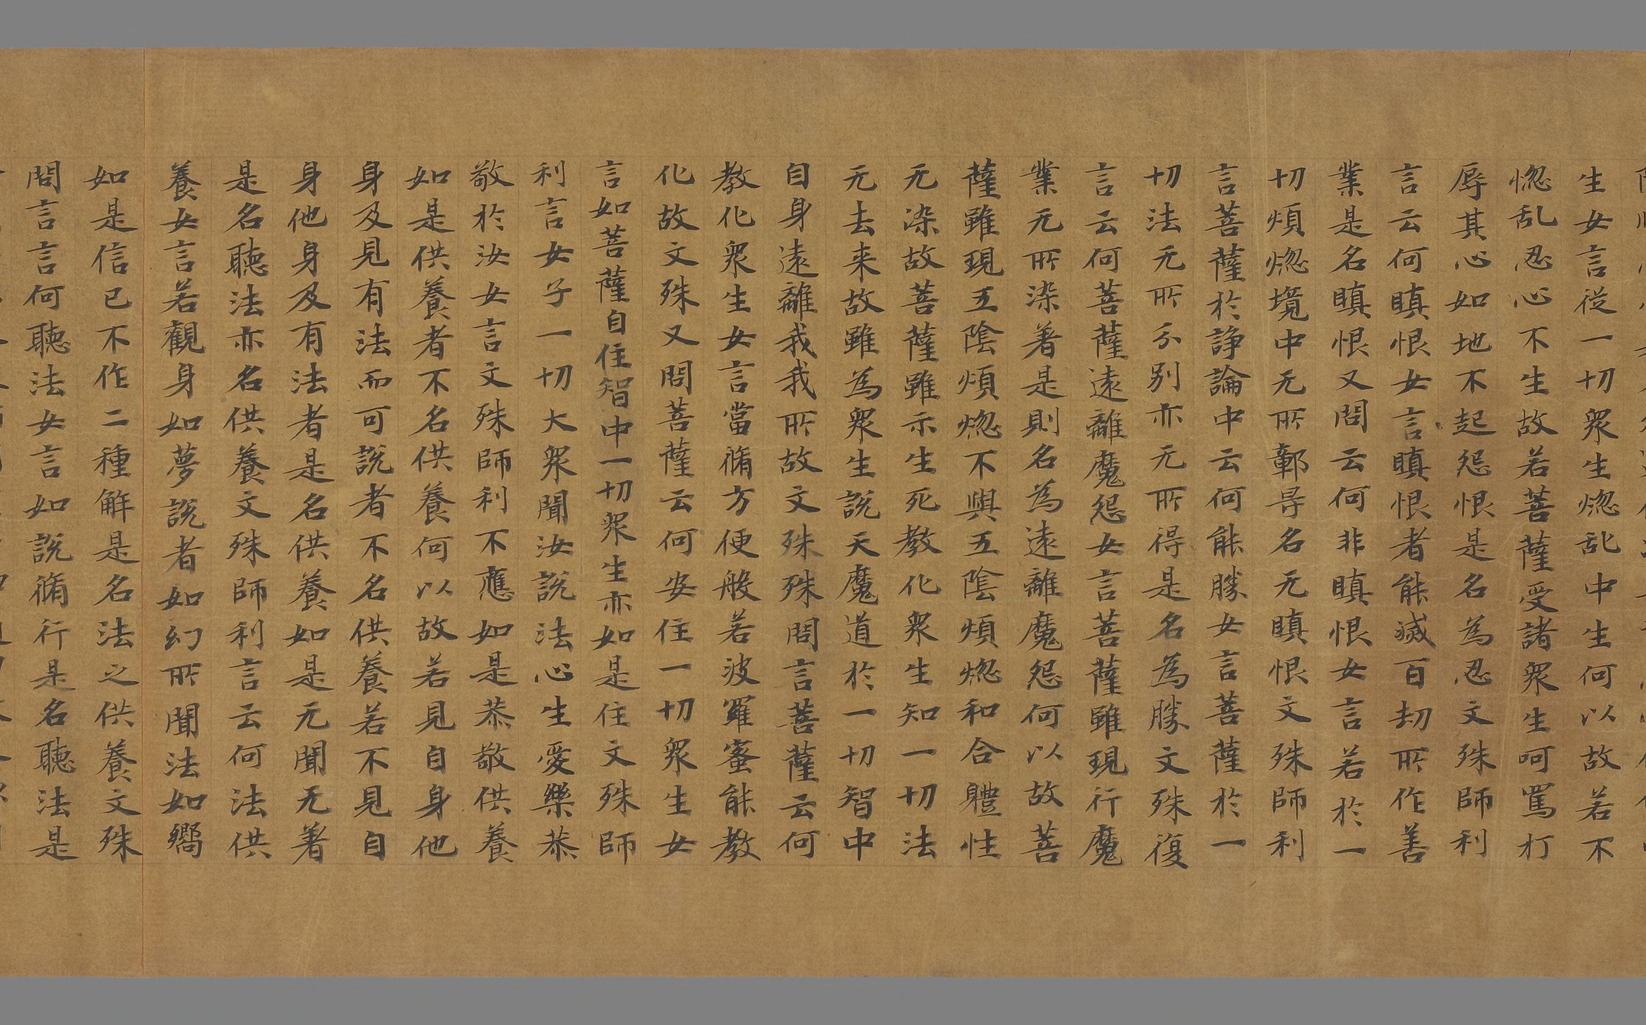 生女言從一切衆生惚乱中生何以故若不
惚乱忍心不生故若菩薩受諸衆生呵罵打
辱其心如地不起怨恨是名為忍文殊師利
言云何瞋恨女言瞋恨者能滅百劫所作善
業是名瞋恨又問云何非瞋恨女言若於一
切煩惚境中无所鄣㝵名无瞋恨文殊師利
言菩薩於諍論中云何能勝女言菩薩於一
切法无所分別亦无所得是名為勝文殊復
言云何菩薩遠離魔怨女言菩薩雖現行魔
業无所染著是則名為遠離魔怨何以故菩
薩雖現五陰煩惚不與五陰煩惚和合軆性
无染故菩薩雖示生死教化衆生知一切法
无去来故雖為衆生説天魔道於一切智中
自身遠離我我所故文殊殊問言菩薩云何
教化衆生女言當脩方便般若波羅蜜能教
化故文殊又問菩薩云何安住一切衆生女
言如菩薩自住智中一切衆生亦如是住文殊師
利言女子一切大衆聞汝說法心生愛樂恭
敬於汝女言文殊師利不應如是恭敬供養
如是供養者不名供養何以故若見自身他
身及見有法而可說者不名供養若不見自
身他身及有法者是名供養如是无聞无著
是名聽法亦名供養文殊師利言云何法供
養女言若觀身如夢說者如幻所聞法如嚮
如是信已不作二種解是名法之供養文殊
問言言何聽法女言如說脩行是名聽法是